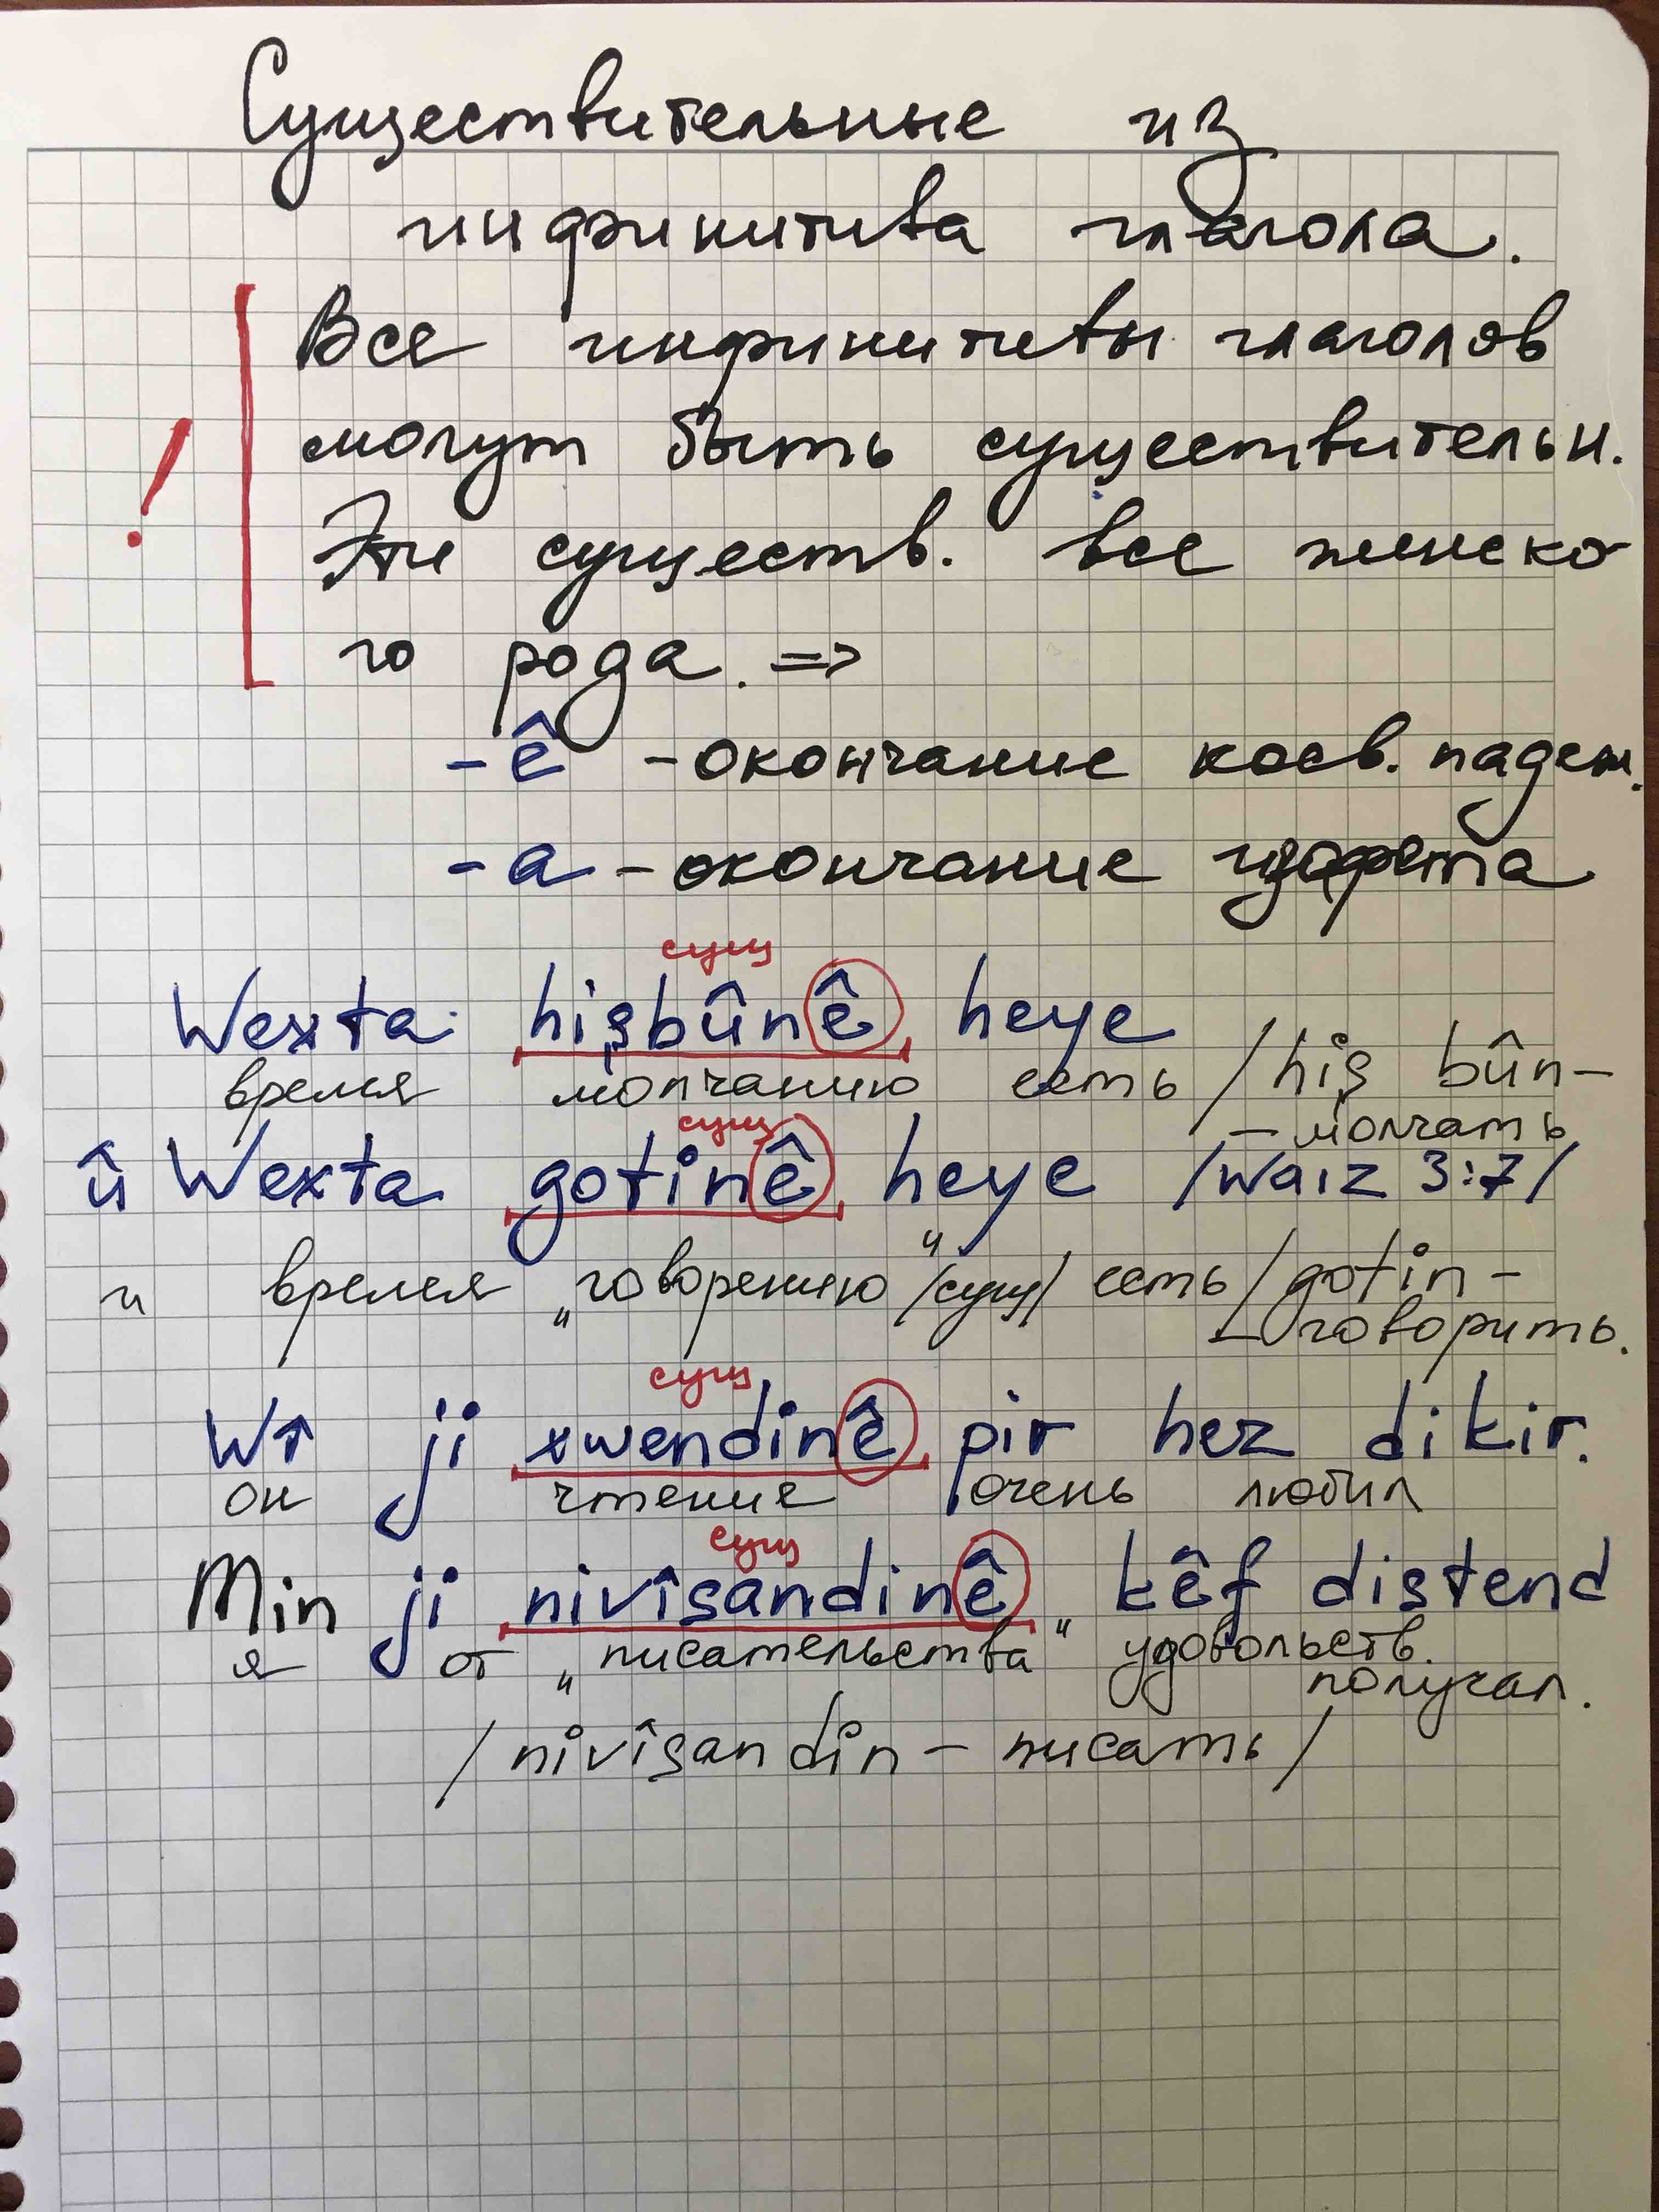 Существительные из
инфинитива глагола.
Все инфинитивы глаголов
могут быть существительн.
! Эти существ. все женско
го рода. =>
-ê - окончание косв. падеж.
-a - окончание изафета
сущ
Wexta hişbûnê heye
время молчанию есть /hiş bûn-
- молчать
сущ
û Wexta gotinê heye /Waiz 3:7/
и время „говорению“ /сущ/ есть /gotin-
- говорить.
сущ
Wî ji xwendinê pir hez dikir.
он чтение очень любил
сущ
Min ji nivîsandinê kêf distend
я от „писательства“ удовольств.
получал.
/nivîsandin - писать/